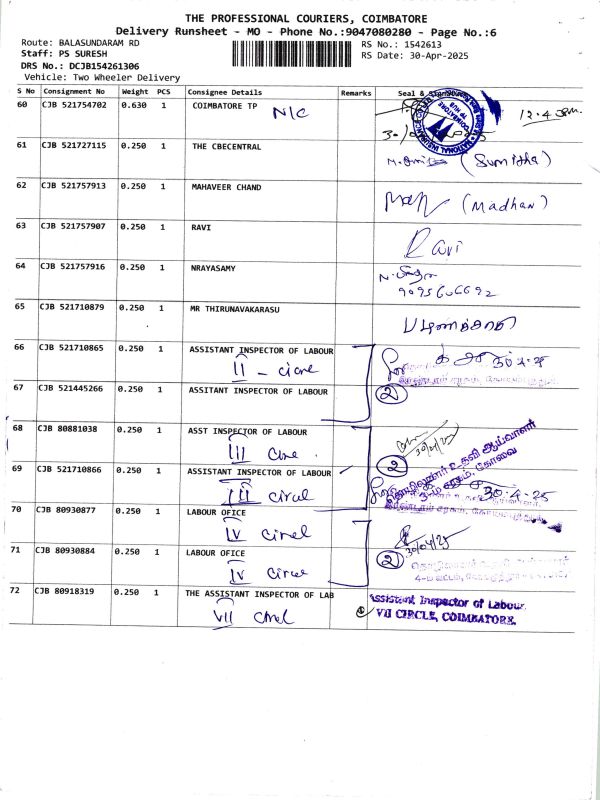 THE PROFESSIONAL COURIERS, COIMBATORE
Delivery Runsheet - MO - Phone No.:9047080280 - Page No.:6
Route: BALASUNDARAM RD
RS No.: 1542613
Staff: PS SURESH
RS Date: 30-Apr-2025
DRS No.: DCJB154261306
Vehicle: Two Wheeler Delivery
S No Consignment No Weight PCS Consignee Details Remarks Seal &
60 CJB 521754702 0.630 1 COIMBATORE TP
N/C
12.4
61 CJB 521727115 0.250 1 THE CBECENTRAL
(Sumitha)
62 CJB 521757913 0.250 1 MAHAVEER CHAND
(Madhan)
63 CJB 521757907 0.250 1 RAVI
Ravi
64 CJB 521757916 0.250 1 NRAYASAMY
65 CJB 521710879 0.250 1 MR THIRUNAVAKARASU
66 CJB 521710865 0.250 1 ASSISTANT INSPECTOR OF LABOUR
II -
30-4-25
67 CJB 521445266 0.250 1 ASSITANT INSPECTOR OF LABOUR
2
68 CJB 80881038 0.250 1 ASST INSPECTOR OF LABOUR
III
30/04/25
2
69 CJB 521710866 0.250 1 ASSISTANT INSPECTOR OF LABOUR
III
தொழிலாளர் உதவி ஆய்வாளர்
3-ம் சரகம், கோவை
30-4-25
70 CJB 80930877 0.250 1 LABOUR OFICE
IV
30/04/25
71 CJB 80930884 0.250 1 LABOUR OFICE
IV
2
72 CJB 80918319 0.250 1 THE ASSISTANT INSPECTOR OF LAB
VII
Assistant Inspector of Labour
VII CIRCLE, COIMBATORE.